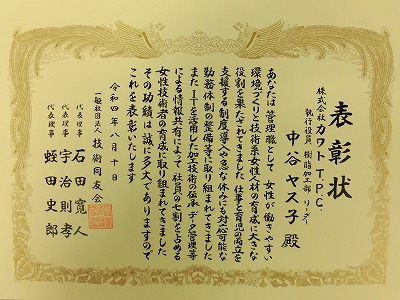 表彰状
株式会社カワトT.P.C.
執行役員 樹脂加工部 リーダー
中谷 ヤス子 殿
あなたは管理職として 女性が働きやすい
環境づくりと技術系女性人材の育成に大きな
役割を果たされてきました 仕事と育児の両立を
支援する制度導入や急な休みにも対応可能な
勤務体制の整備等に取り組まれてきました
またITを活用した加工技術の伝承 データ管理等
による情報共有によって 社員の七割を占める
女性技術者の育成に取り組まれてきました
その功績は誠に多大でありますので
これを表彰いたします
令和四年八月十日
一般社団法人 技術同友会
代表理事 石田寛人
代表理事 宇治則孝
代表理事 蛭田史郎